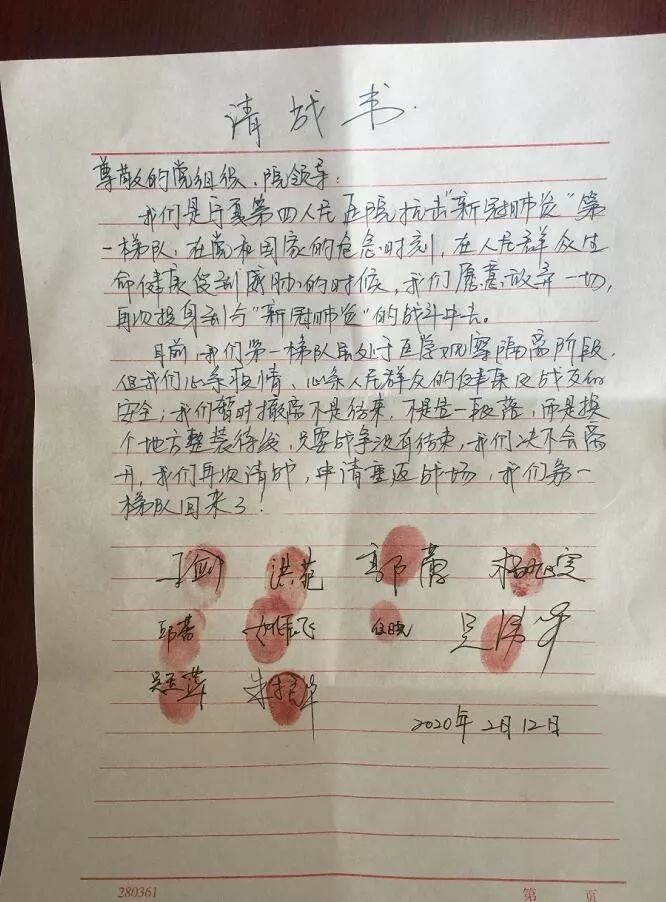 请战书
尊敬的党组织、院领导:
我们是宁夏第四人民医院抗击"新冠肺炎"第
一梯队,在党和国家的危急时刻,在人民群众生
命健康受到威胁的时候,我们愿意放弃一切,
再次投身到与"新冠肺炎"的战斗中去。
目前,我们第一梯队虽处于医学观察隔离阶段,
但我们心系疫情、心系人民群众的健康及战友的
安全;我们暂时撤离不是结束,不是告一段落,而是换
个地方整装待发,只要战争没有结束,我们决不会离
开,我们再次请战,申请重返战场,我们第一
梯队回来了!
洪苑 郭蕾
邱蕾
2020年2月12日
280361 第 页